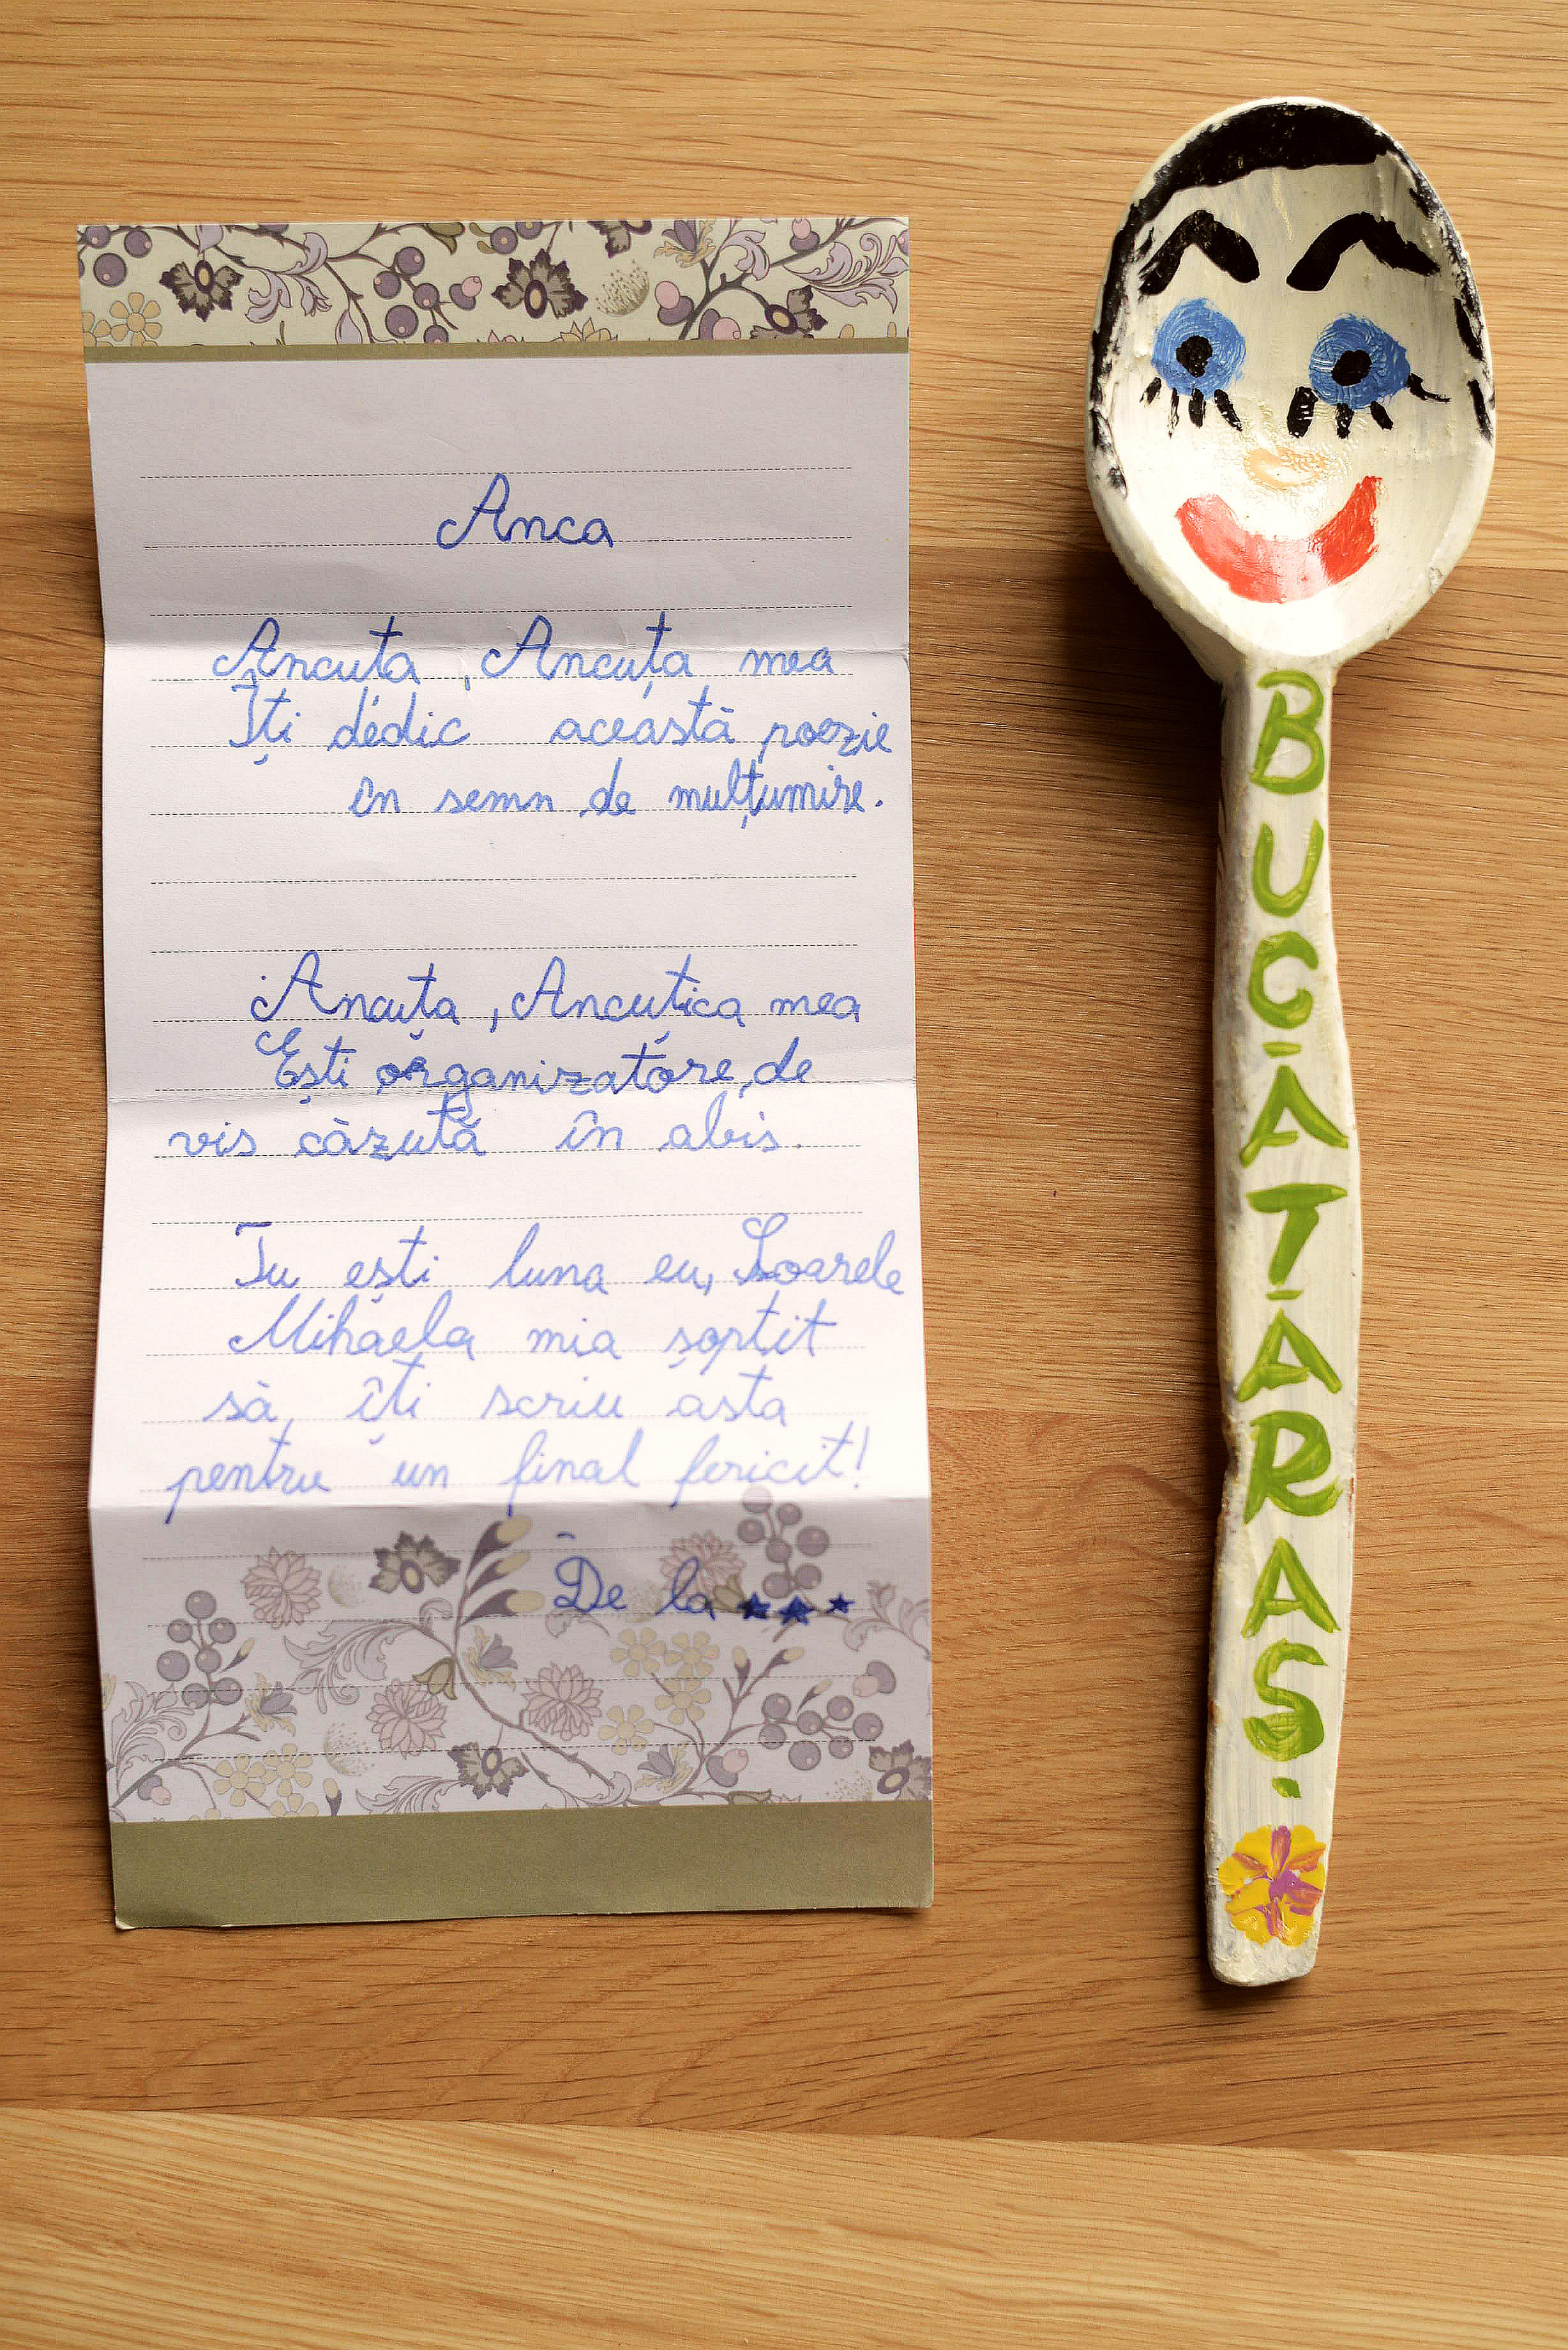 Anca
Ancuta, Ancuța mea
Îți dedic această poezie
în semn de mulțumire.
Ancuța, Ancuțica mea
Ești organizatore, de
vis căzută în abis.
Tu ești luna eu, Soarele
Mihaela mia șoptit
să, îți scriu asta
pentru un final fericit!
De la ★★★
BUCĂTĂRAȘ